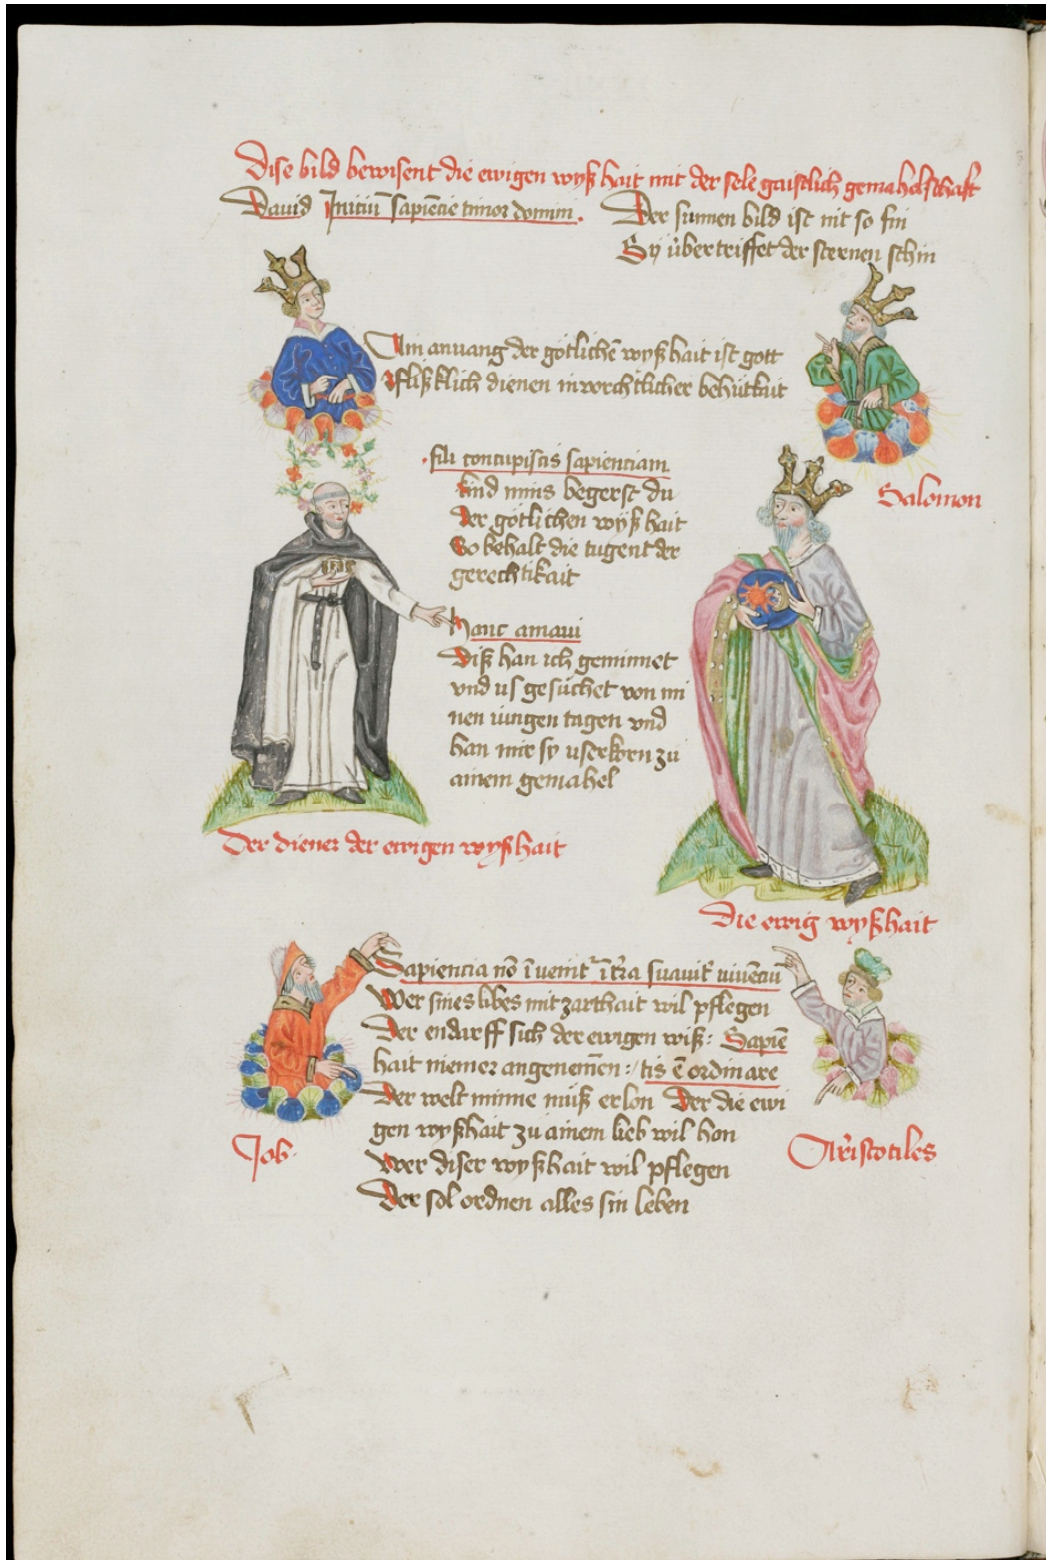 Dise bild bewisent die ewigen wyßhait mit der sele gaistlich gemahelschaft
Dauid Initiū sapiēcie timor domini.
Der sunnen bild ist nit so fin
Sy übertriffet der sternen schin
Am anuang der götlichē wyßhait ist gott
flißklich dienen in vorchtlicher behütkait
Salomon
fili concupiscis sapienciam
kind mins begerst du
der götlichen wyßhait
so behalt die tugent der
gerechtikait
Hanc amaui
Diß han ich geminnet
vnd us gesüchet von mi
nen iungen tagen vnd
han mir sy userkorn zu
ainem gemahel
Der diener der ewigen wyßhait
Die ewig wyßhait
Sapiencia nō īuenit' ī t'ra suauit' viuēciū
Wer sines libes mit zarthait wil pflegen
Der endarff sich der ewigen wiß: Sapiē
hait niemer angenemen :/ tis ē ordinare
Der welt minne müß erlon Der die ewi
gen wyßhait zu ainem lieb wil hon
Wer diser wyßhait wil pflegen
Der sol ordnen alles sin leben
Job.
Aristotiles